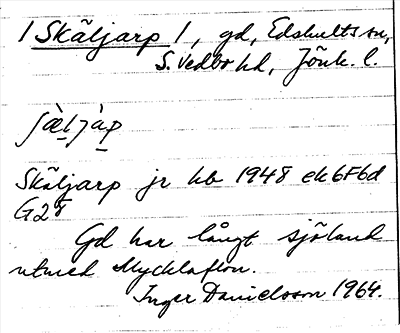 1 Skäljarp 1, gd, Edshults sn,
S. Vedbo hd, Jönk. l.
ʃæ̀ljàp
Skäljarp jr hb 1948 ek 6F6d
G 28
Gd har långt sjöland
utmed Mycklaflon.
Inger Danielsson 1964.